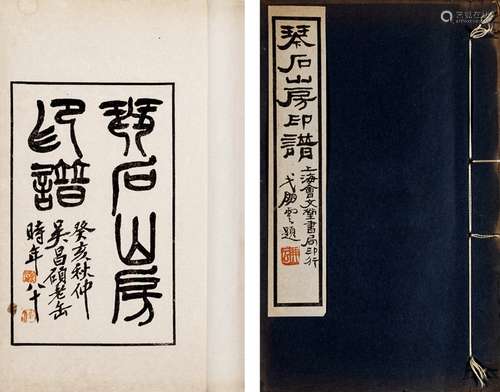 琴石山房
印譜
癸亥秋仲
吳昌碩老缶
時年八十
琴石山房印譜
上海會文堂書局印行
弋朋雲題
京品在线